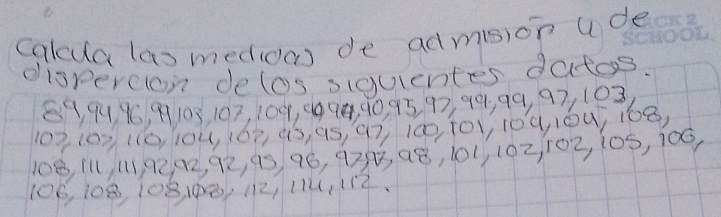 Calcula las medidas de admisión y de
dispercion de los siguientes datos.
89, 94, 96, 99, 103, 107, 109, 90, 95, 97, 99, 99, 97, 103,
107, 107, 110, 104, 107, 93, 95, 97, 100, 101, 104, 104, 108,
108, 111, 111, 92, 92, 92, 95, 96, 98, 101, 102, 102, 105, 106,
106, 108, 108, 108, 112, 114, 112.